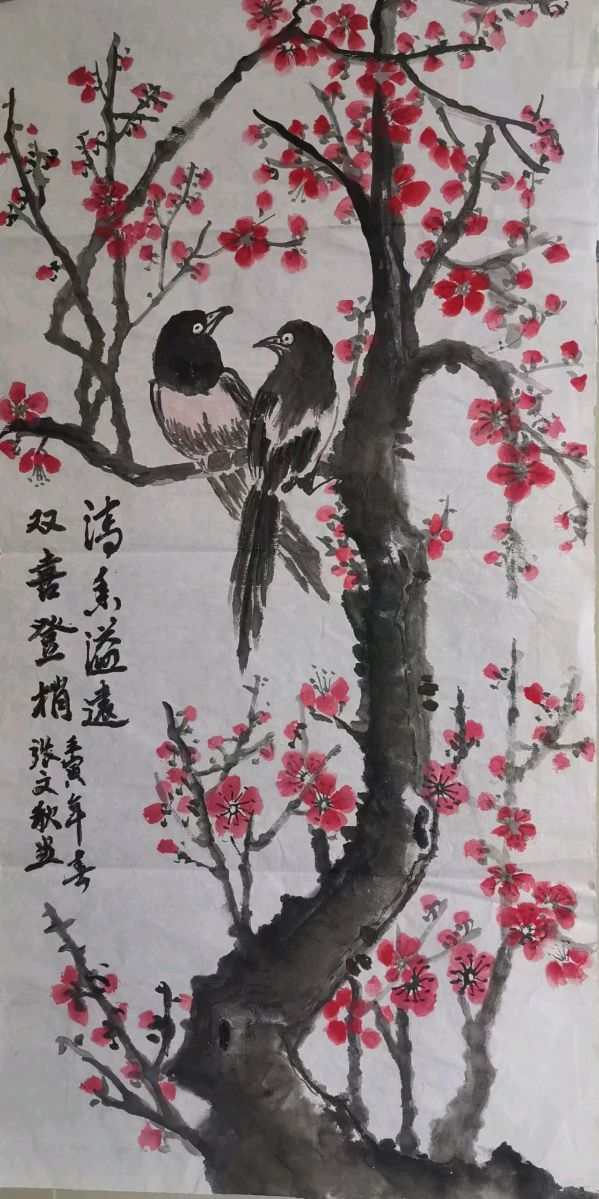 清香溢远
壬寅年春
双喜登梢
张文秋画